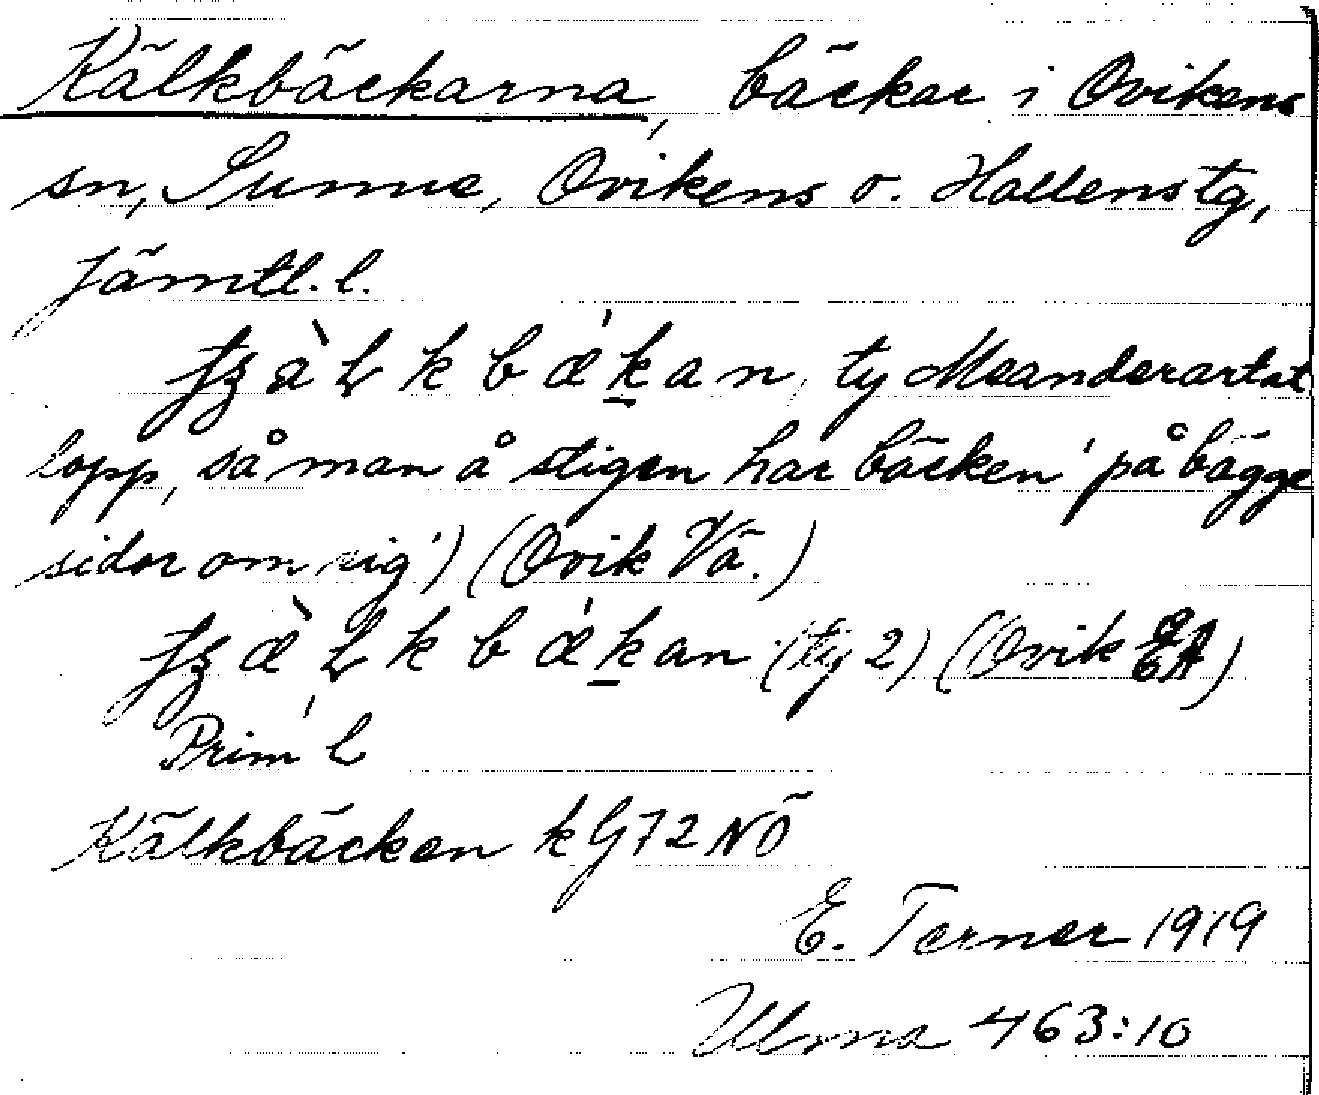 Kälkbäckarna, bäckar i Ovikens
sn, Sunne, Ovikens o. Hallens tg,
Jämtl. l.
k b æ̀ k a n, ty Meanderartat
lopp, så man å stigen har bäcken 'på bägge
sidor om sig') (Ovik Vä.)
k b æ̀ k an (ty 2) (Ovik EA)
Prim L
Kälkbäcken k G72 NÖ
E. Terner 1919
Ulma 463:10